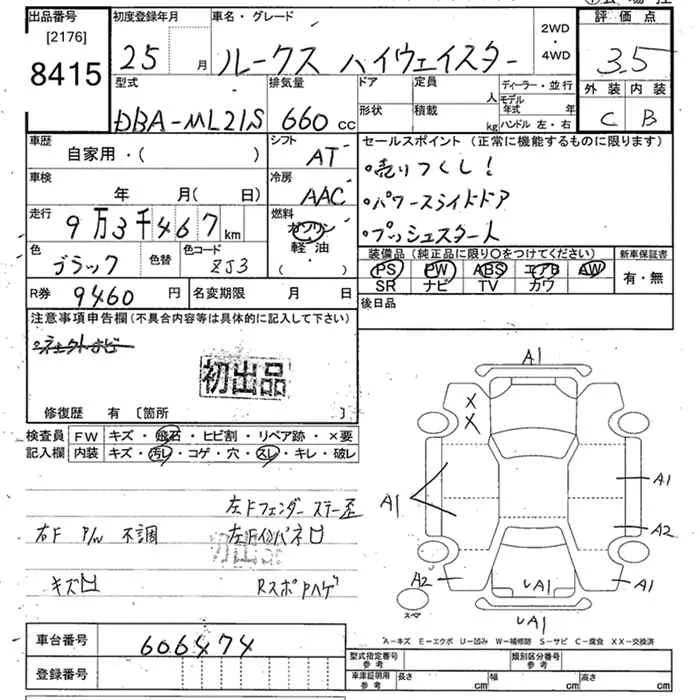 出品番号 初度登録年月 車名・グレード 2WD・4WD 評価点
[2176]
8415 25 月 ルークス ハイウェイスター 3.5
型式 排気量 ドア 定員 人 ディーラー・並行 外装 内装
DBA-ML21S 660 cc 形状 積載 kg モデル年式 年 ハンドル 左・右 C B
車歴 シフト セールスポイント (正常に機能するものに限ります)
自家用・( ) AT 。売りつくし!
車検 冷房
年 月( 日) AAC 。パワースライドドア
走行 燃料
9万3千467 km ガソリン 。プッシュスタート
色 色替 色コード 軽油 装備品 (純正品に限り〇をつけてください) 新車保証書
ブラック ZJ3 ・( ) PS PW ABS エアB AW 有・無
R券 9460 円 名変期限 月 日 SR ナビ TV カワ
注意事項申告欄 (不具合内容等は具体的に記入して下さい) 後日品
初出品
修復歴 有 〔箇所 〕
検査員 FW キズ・飛石・ヒビ割・リペア跡・×要
記入欄 内装 キズ・汚レ・コゲ・穴・スレ・キレ・破レ
左Fフェンダー ステー歪
右F P/W 不調 左Fインパネロ
初出品
キズ凹 RスポPハゲ
A1
X
X
A1 A1
A2
A2 A1 A1
スペア A1
A-キズ E-エクボ U-凹み W-補修跡 S-サビ C-腐食 XX-交換済
車台番号 606474 型式指定番号 参考 類別区分番号 参考
登録番号 車庫証明用 参考 長さ cm 幅 cm 高さ cm